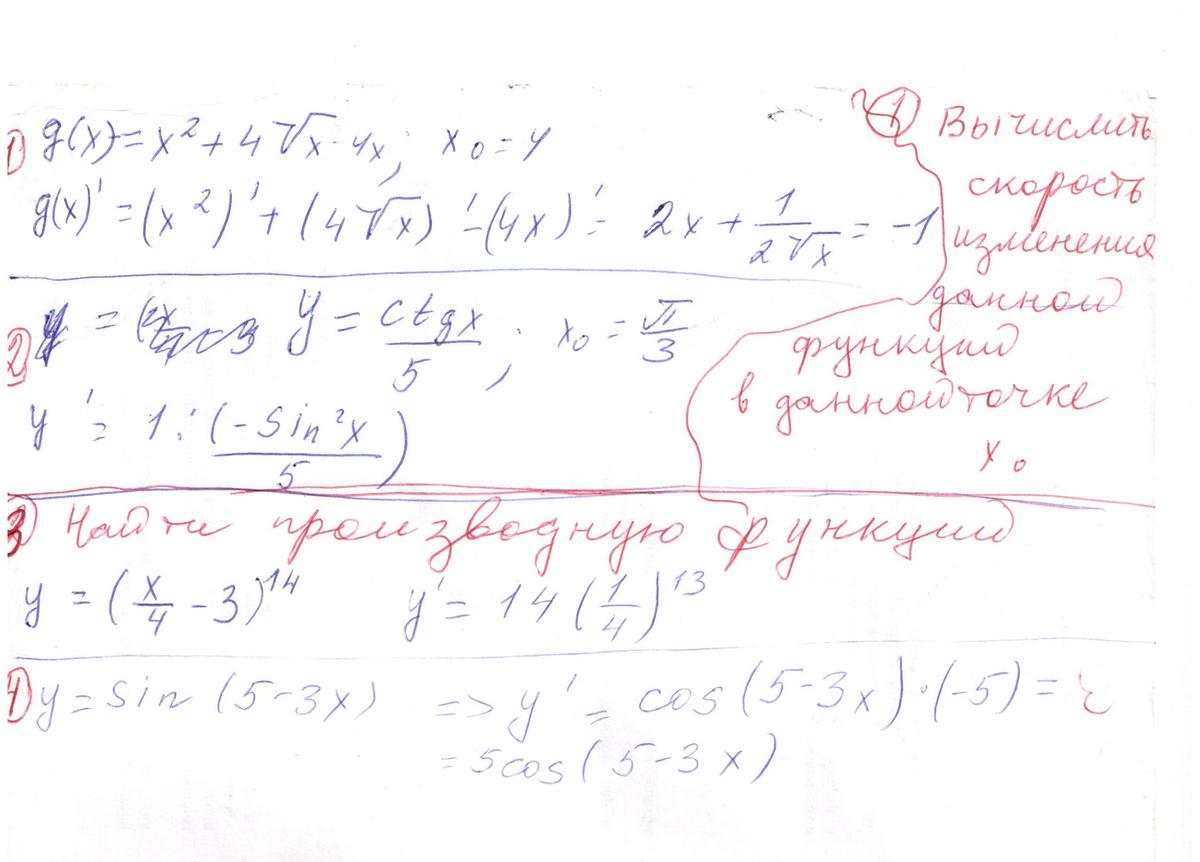 1) g(x) = x² + 4√x - 4x; x₀ = 4
g(x)' = (x²)' + (4√x)' - (4x)' = 2x + 1/(2√x) = -1
? 1 Вычислить
скорость
изменения
данной
функции
в данной точке
x₀
2) y = y = ctgx/5; x₀ = π/3
y' = 1 : (-sin²x/5)
3) Найти производную функции
y = (x/4 - 3)¹⁴ y' = 14 (1/4)¹³
4) y = sin (5-3x) => y' = cos(5-3x)·(-5) =
= 5cos(5-3x)